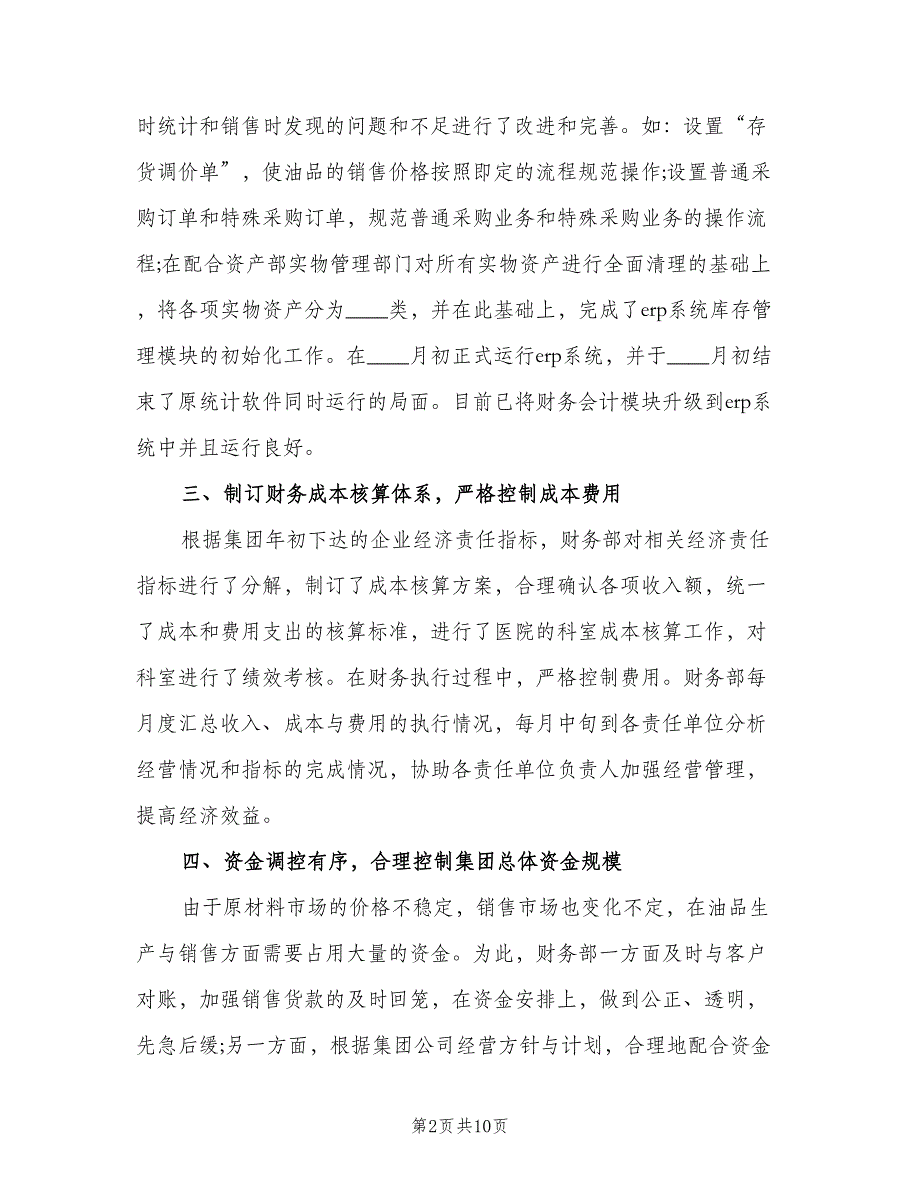 时统计和销售时发现的问题和不足进行了改进和完善。如：设置“存
货调价单”，使油品的销售价格按照即定的流程规范操作;设置普通采
购订单和特殊采购订单，规范普通采购业务和特殊采购业务的操作流
程;在配合资产部实物管理部门对所有实物资产进行全面清理的基础上
，将各项实物资产分为____类，并在此基础上，完成了erp系统库存管
理模块的初始化工作。在____月初正式运行erp系统，并于____月初结
束了原统计软件同时运行的局面。目前已将财务会计模块升级到erp系
统中并且运行良好。
三、制订财务成本核算体系，严格控制成本费用
根据集团年初下达的企业经济责任指标，财务部对相关经济责任
指标进行了分解，制订了成本核算方案，合理确认各项收入额，统一
了成本和费用支出的核算标准，进行了医院的科室成本核算工作，对
科室进行了绩效考核。在财务执行过程中，严格控制费用。财务部每
月度汇总收入、成本与费用的执行情况，每月中旬到各责任单位分析
经营情况和指标的完成情况，协助各责任单位负责人加强经营管理，
提高经济效益。
四、资金调控有序，合理控制集团总体资金规模
由于原材料市场的价格不稳定，销售市场也变化不定，在油品生
产与销售方面需要占用大量的资金。为此，财务部一方面及时与客户
对账，加强销售货款的及时回笼，在资金安排上，做到公正、透明，
先急后缓;另一方面，根据集团公司经营方针与计划，合理地配合资金
第2页共10页